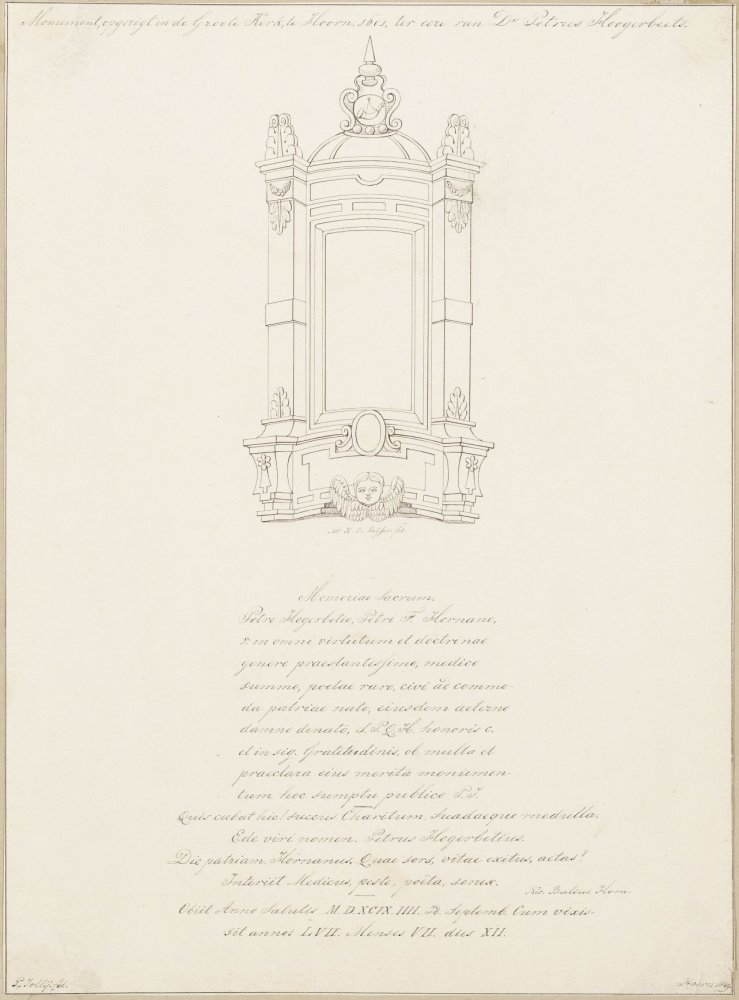 Monument, opgerigt in de Groote Kerk, te Hoorn, ter eere van Dr. Petrus Hoogerbeets.
Memoriae Sacrum.
Petro Hogerbetio, Petri F. Hornano,
in omni virtutum et doctrinae
genere praestantissimo, medico
summo, poetae raro, civi ad commo-
da patriae nato, eiusdem aeterno
damno denato, S.P.Q.H. honoris c.
et in sig. Gratitudinis, ob multa et
praeclara eius merita monumen-
tum hoc sumptu publico P.
Quis cubat hic? succus Charitum, suadaeque medulla.
Ede viri nomen. Petrus Hogerbetius.
Dic patriam. Hornanus. Quae sors, vitae exitus, aetas?
Interiit Medicus, peste, poëta, senex.
Nic. Horn.
Obiit Anno Salutis M.D.XCIX. IIII. Septemb. Cum vixis-
sit annos LVII. Menses VII. dies XII.
Hoorn